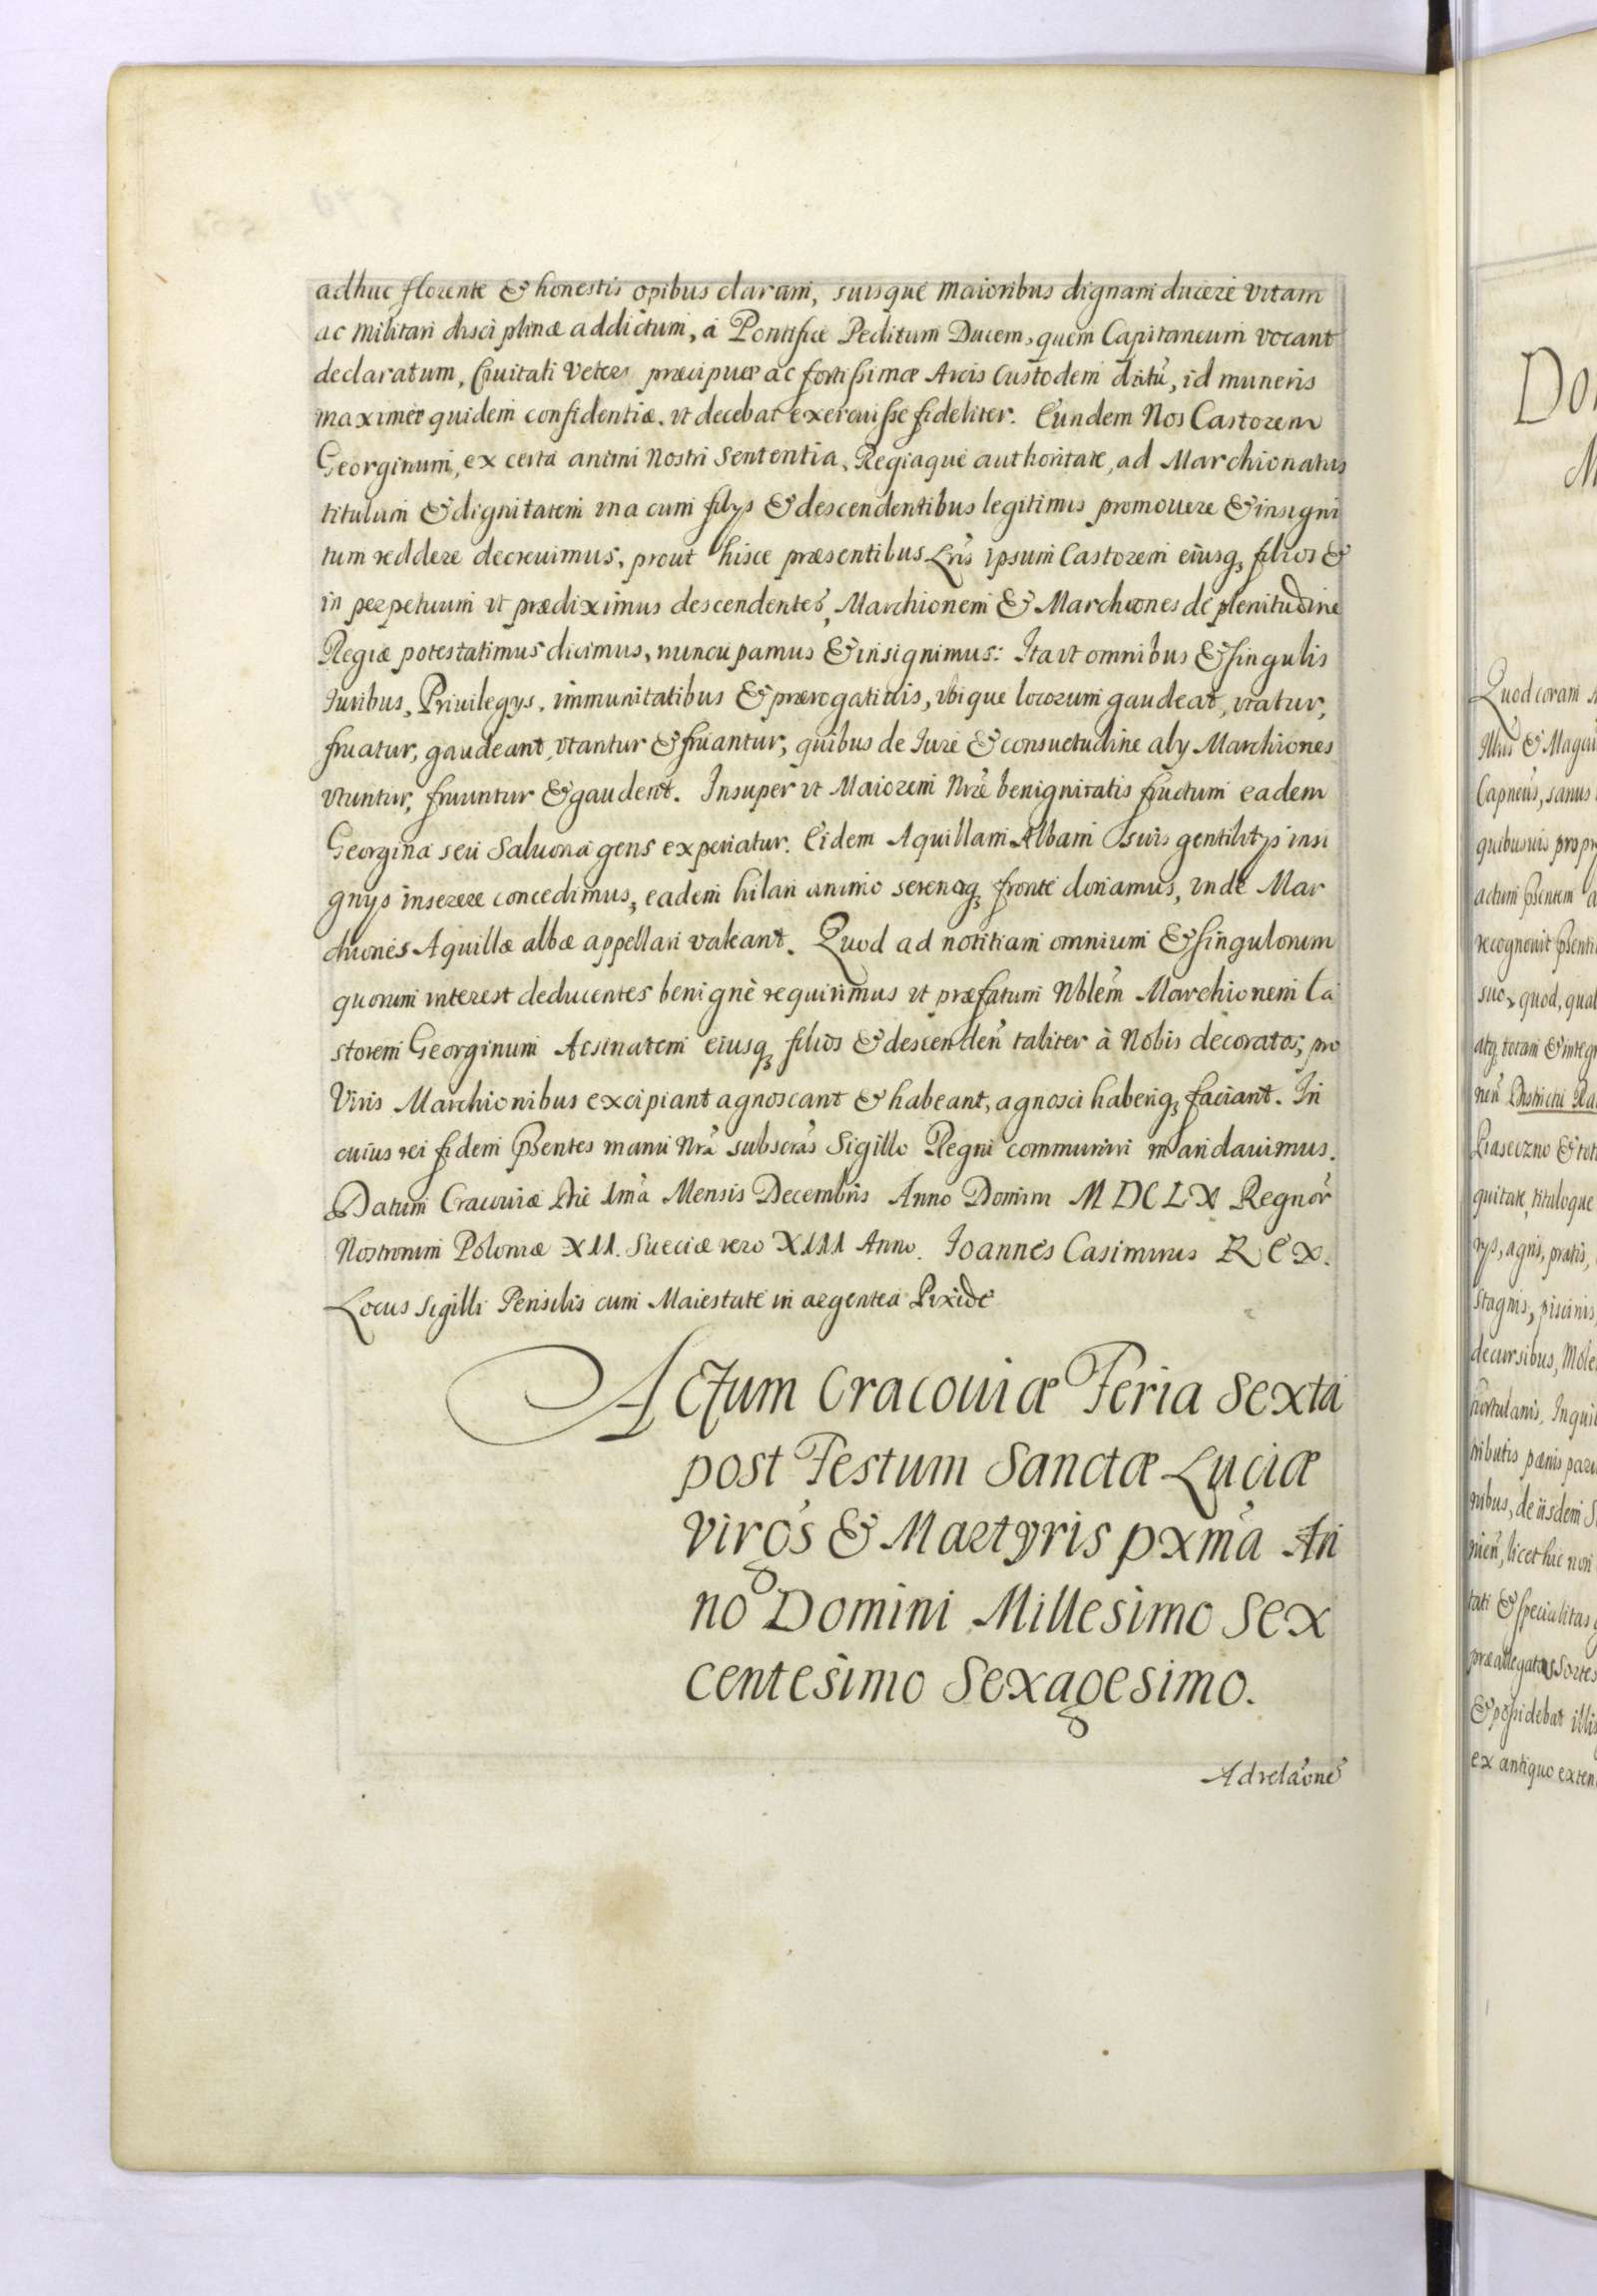 adhuc florente & honestis opibus claram, suisque maioribus dignam ducere vitam
ac militari disciplinæ addictum, á Pontifice Peditum Ducem, quem Capitaneum vocant
declaratum, Ciuitati Veteri præcipuæ ac fortissimæ Arcis Custodem dātū, id muneris
maximæ quidem confidentiæ, vt decebat exercuisse fideliter. Eundem Nos Castorem
Georginum, ex certa animi Nostri Sententia, Regiaque authoritate, ad Marchionatus
titulum & dignitatem vna cum filÿs & descendentibus legitimis promouere & insigni
tum reddere decreuimus, prout hisce præsentibus Lr̃is ipsum Castorem eiusq, filios &
in perpetuum vt prædiximus descendentes, Marchionem & Marchiones de plenitudine
Regiæ potestatimus dicimus, nuncupamus & insignimus: Ita vt omnibus & singulis
Iuribus, Priuilegÿs, immunitatibus & prærogatiuis, vbique locorum gaudeat, vtatur,
fruatur, gaudeant, vtantur & fruantur, quibus de Iure & consuetudine alÿ Marchiones
vtuntur, fruuntur & gaudent. Insuper vt Maiorem Nr̃æ benignitatis fructum eadem
Georgina seu Saluona gens experiatur. Eidem Aquillam Albam suis gentilitÿs insi
gnÿs inserere concedimus, eadem hilari animo serenaq, fronte donamus, vnde Mar
chiones Aquillæ albæ appellari valeant. Quod ad notitiam omnium & singulorum
quorum interest deducentes benignè requirimus vt præfatum Nblẽm Marchionem Ca
storem Georginum Aesinatem eiusq, filios & descendeñ taliter à Nobis decoratos, pro
Viris Marchionibus excipiant agnoscant & habeant, agnosci haberiq, faciant. In
cuius rei fidem p̃sentes manu Nr̃a subscr̃as Sigillo Regni communiri mandauimus.
Datum Cracouiæ Die 1ma Mensis Decembris Anno Domini MDCLX Regnor̃
Nostrorum Poloniæ XII. Sueciæ vero XIII Anno. Ioannes Casimirus REX.
Locus sigilli Pensilis cum Maiestate in argentea Pixide
Actum Cracouiæ Feria Sexta
post Festum Sanctæ Luciæ
virg̃s & Martyris px̃ma An
no Domini Millesimo Sex
centesimo Sexagesimo.
Ad rela͠one͠
Quod coram
Illũs & Magni
Capneũs, sanus
quibusuis propr
actum p̃sentem a
recognouit p̃senti
suo, quod, qual
atq, totam & integr
neñ Districtu Ra
Piaseczno & tot
guitate, tituloque
rÿs, agris, pratis,
stagnis, piscinis,
decursibus, Mole
hortulanis, Inquil
nibus, de iisdem S
licet hic non
tati & specialitas
præallegatas Sortes
& possidebat illis
ex antiquo exten